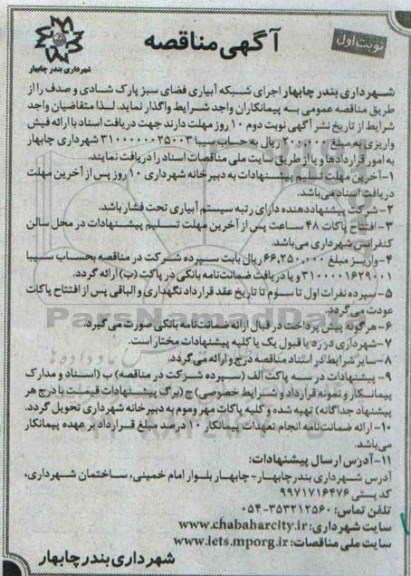 نوبت اول
آگهی مناقصه
شهرداری بندر چابهار
شهرداری بندر چابهار اجرای شبکه آبیاری فضای سبز پارک شادی و صدف را از
طریق مناقصه عمومی به پیمانکاران واجد شرایط واگذار نماید. لذا متقاضیان واجد
شرایط از تاریخ نشر آگهی نوبت دوم ۱۰ روز مهلت دارند جهت دریافت اسناد با ارائه فیش
واریزی به مبلغ ۲۰۰,۰۰۰ ریال به حساب سیبا ۳۱۰۰۰۰۰۰۲۵۰۰۳ شهرداری چابهار
به امور قراردادها و یا از طریق سایت ملی مناقصات اسناد را دریافت نمایند.
۱-آخرین مهلت تسلیم پیشنهادات به دبیرخانه شهرداری ۱۰ روز پس از آخرین مهلت
دریافت اسناد می‌باشد.
۲-شرکت پیشنهاددهنده دارای رتبه سیستم آبیاری تحت فشار باشد.
۳-افتتاح پاکات ۴۸ ساعت پس از آخرین مهلت تسلیم پیشنهادات در محل سالن
کنفرانس شهرداری می‌باشد.
۴-واریز مبلغ ۶۶,۲۵۰,۰۰۰ ریال بابت سپرده شرکت در مناقصه بحساب سیبا
۳۱۰۰۰۰۱۶۲۹۰۰۱ و یا دریافت ضمانت‌نامه بانکی در پاکت (ب) ارائه گردد.
۵-سپرده نفرات اول تا سوم تا تاریخ عقد قرارداد نگهداری و الباقی پس از افتتاح پاکات
عودت می‌گردد.
۶-هرگونه پیش پرداخت در قبال ارائه ضمانت‌نامه بانکی صورت می‌گیرد.
۷-شهرداری در رد یا قبول یک یا کلیه پیشنهادات مختار است.
۸-سایر شرایط در اسناد مناقصه درج و ارائه می‌گردد.
۹- پیشنهادات در سه پاکت الف (سپرده شرکت در مناقصه) ب (اسناد و مدارک
پیمانکار و نمونه قرارداد و شرایط خصوصی) ج (برگ پیشنهادات قیمت با درج هر
پیشنهاد جداگانه) تهیه شده و کلیه پاکات مهر و موم به دبیرخانه شهرداری تحویل گردد.
۱۰- ارائه ضمانت‌نامه انجام تعهدات پیمانکار ۱۰ درصد مبلغ قرارداد بر عهده پیمانکار
می‌باشد.
۱۱-آدرس ارسال پیشنهادات:
آدرس شهرداری بندر چابهار- چابهار بلوار امام خمینی، ساختمان شهرداری،
کد پستی ۹۹۷۱۷۱۶۴۷۶
تلفن تماس: ۳۵۳۲۱۲۵۶۰-۰۵۴
سایت شهرداری: www.chabaharcity.ir
سایت ملی مناقصات: www.iets.mporg.ir
شهرداری بندر چابهار